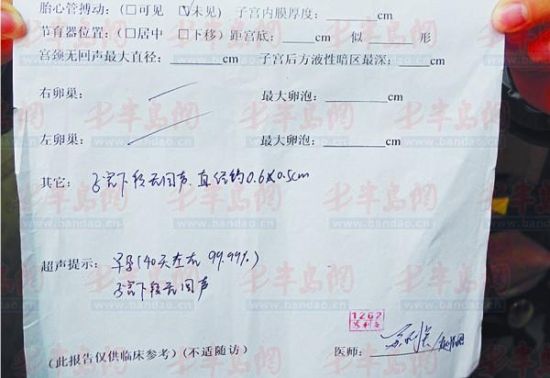 胎心管搏动：(□可见 ☑未见) 子宫内膜厚度：______cm
节育器位置：(□居中 □下移) 距宫底：______cm 似______形
宫颈无回声最大直径：______cm 子宫后方液性暗区最深：______cm
右卵巢： 最大卵泡：______cm
左卵巢： 最大卵泡：______cm
其它：子宫下段无回声,直径约0.6X0.5cm
超声提示：早孕(40天左右 99.99%)
子宫下段无回声
1262
医师：
(此报告仅供临床参考)(不适随访)
半岛網
www.bandao.cn